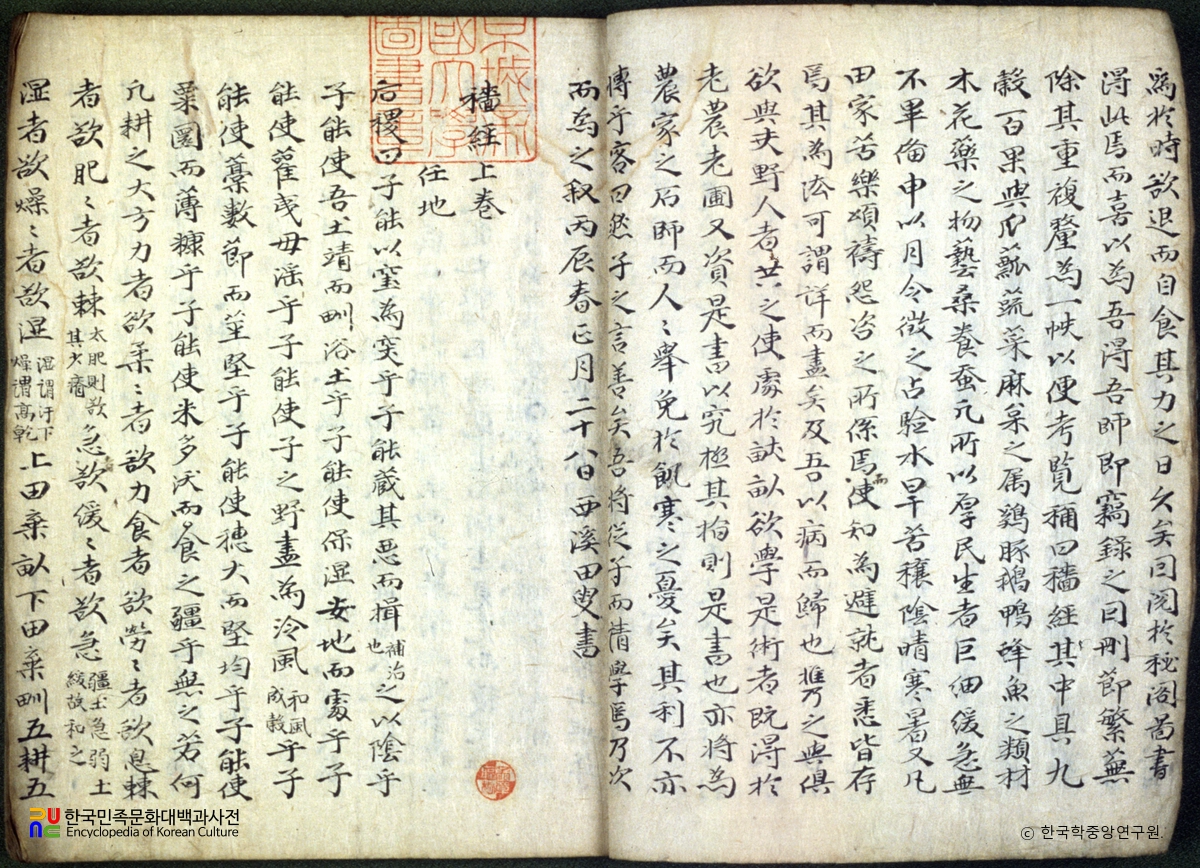 爲於時欲退而自食其力之日久矣因閱於秘閣啚書
淂此焉而喜以為吾淂吾師即竊錄之因刪節繁蕪
除其重複釐為一帙以便考覽稱曰穡經其中具九
糓百果與爪瓢蔬菜麻枲之属鷄豚鵝鴨蜂魚之類材
木花藥之物藝桑養蚕凢所以厚民生者巨細緩急無
不畢倫申以月令徵之占驗水旱苦穰陰晴寒暑又凢
田家苦樂頌禱怨咨之所係焉而使知為避就者悉皆存
焉其為法可謂詳而盡矣及吾以病而歸也推乃之與俱
欲與夫野人者共之使處於畎畒欲學是術者旣淂於
老農老圃又資是書以究極其指則是書也亦將為
農家之后師而人〻舉免於飢寒之憂矣其利不亦
博乎客曰然子之言善矣吾將從子而請學焉乃次
而為之叙丙辰春正月二十八日西溪田叟書
穡經上卷
任地
后稷曰子能以窐為突乎子能藏其悪而揖補治也之以陰乎
子能使吾土靖而甽浴土乎子能使保湿安地而處乎子
能使雚荑毋滛乎子能使子之野盡為冷風和風成糓乎子
能使藁數節而莖堅乎子能使穗大而堅均乎子能使
粟圎而薄糠乎子能使米多沃而食之彊乎無之若何
凢耕之大方力者欲柔〻者欲力食者欲勞〻者欲息棘
者欲肥〻者欲棘太肥則欲其少瘠急欲緩〻者欲急疆土急弱土緩故和之
湿者欲燥〻者欲湿湿謂汙下燥謂高乾上田棄畒下田棄甽五耕五
한국민족문화대백과사전
Encyclopedia of Korean Culture
ⓒ 한국학중앙연구원.